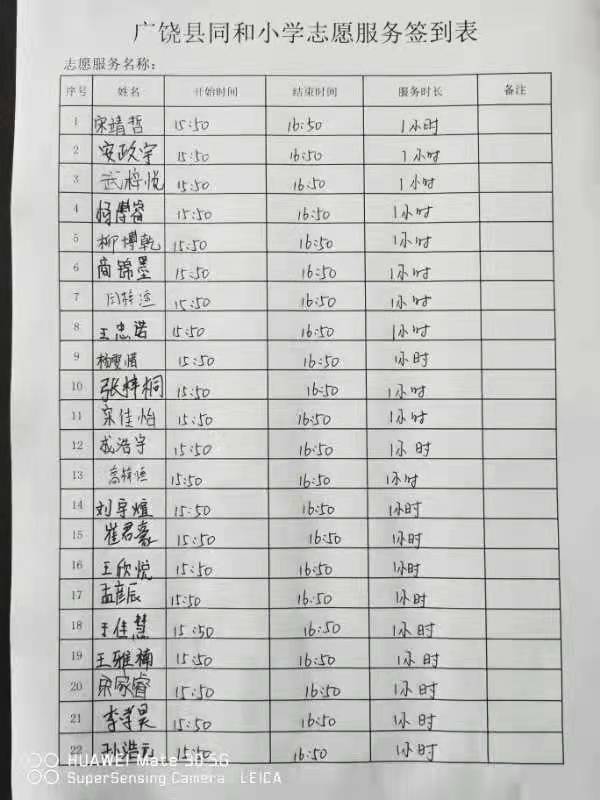 广饶县同和小学志愿服务签到表
志愿服务名称:
序号 姓名 开始时间 结束时间 服务时长 备注
1 宋靖哲 15:50 16:50 1小时
2 安政宇 15:50 16:50 1小时
3 武梓悦 15:50 16:50 1小时
4 杨博睿 15:50 16:50 1小时
5 柳博乾 15:50 16:50 1小时
6 商锦墨 15:50 16:50 1小时
7 15:50 16:50 1小时
8 王忠诺 15:50 16:50 1小时
9 15:50 16:50 1小时
10 张梓桐 15:50 16:50 1小时
11 宋佳怡 15:50 16:50 1小时
12 成浩宇 15:50 16:50 1小时
13 15:50 16:50 1小时
14 刘宇煊 15:50 16:50 1小时
15 崔君豪 15:50 16:50 1小时
16 王欣悦 15:50 16:50 1小时
17 孟彦辰 15:50 16:50 1小时
18 王佳慧 15:50 16:50 1小时
19 王雅楠 15:50 16:50 1小时
20 宋家睿 15:50 16:50 1小时
21 李学昊 15:50 16:50 1小时
22 孙浩元 15:50 16:50 1小时
HUAWEI Mate 30 5G
SuperSensing Camera LEICA